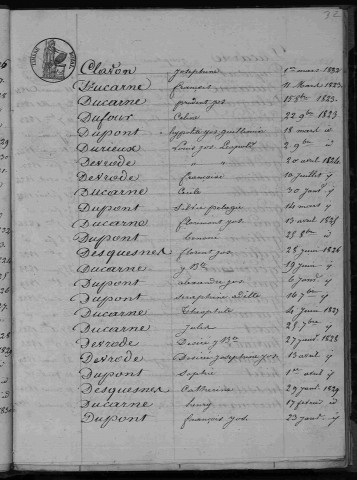 32
Clavon Josephine 1er mars 1823
Ducarne françois 11 Mars 1823
Ducarne prudent jos. 15 8bre 1823
Dufour Celina 22 9bre 1823
Dupont hyppolite jos. guillaume 18 mars d
Durieux Louis jos. Léopold 2 9bre d
Devrode " " 20 avril 1824
Devrode françoise 10 juillet y
Ducarne Cécile 30 janv. y
Dupont Silvie pelagie 14 mars y
Ducarne florimont jos. 13 avril 1825
Dupont 25 8bre d
Desquesnes florent jos. 28 juin 1826
Ducarne J Bte 19 juin y
Dupont alexandre jos. 6 janv. y
Dupont Seraphine adèle 16 7bre y
Ducarne Théophile 4 juin 1827
Ducarne Jules 25 7bre y
Devrode Désiré J Bte 27 janv. 1828
Devrode Désirée josephine jos. 13 avril y
Dupont Sophie 1er avril y
Desquesnes Catherine 29 janv. 1829
Ducarne 17 février d
Dupont françois jos. 23 janv. y